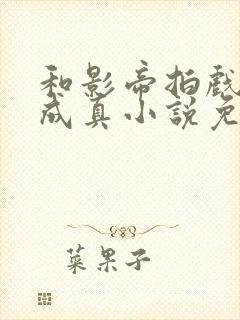 和影帝拍戏
成真小説免
菜果子